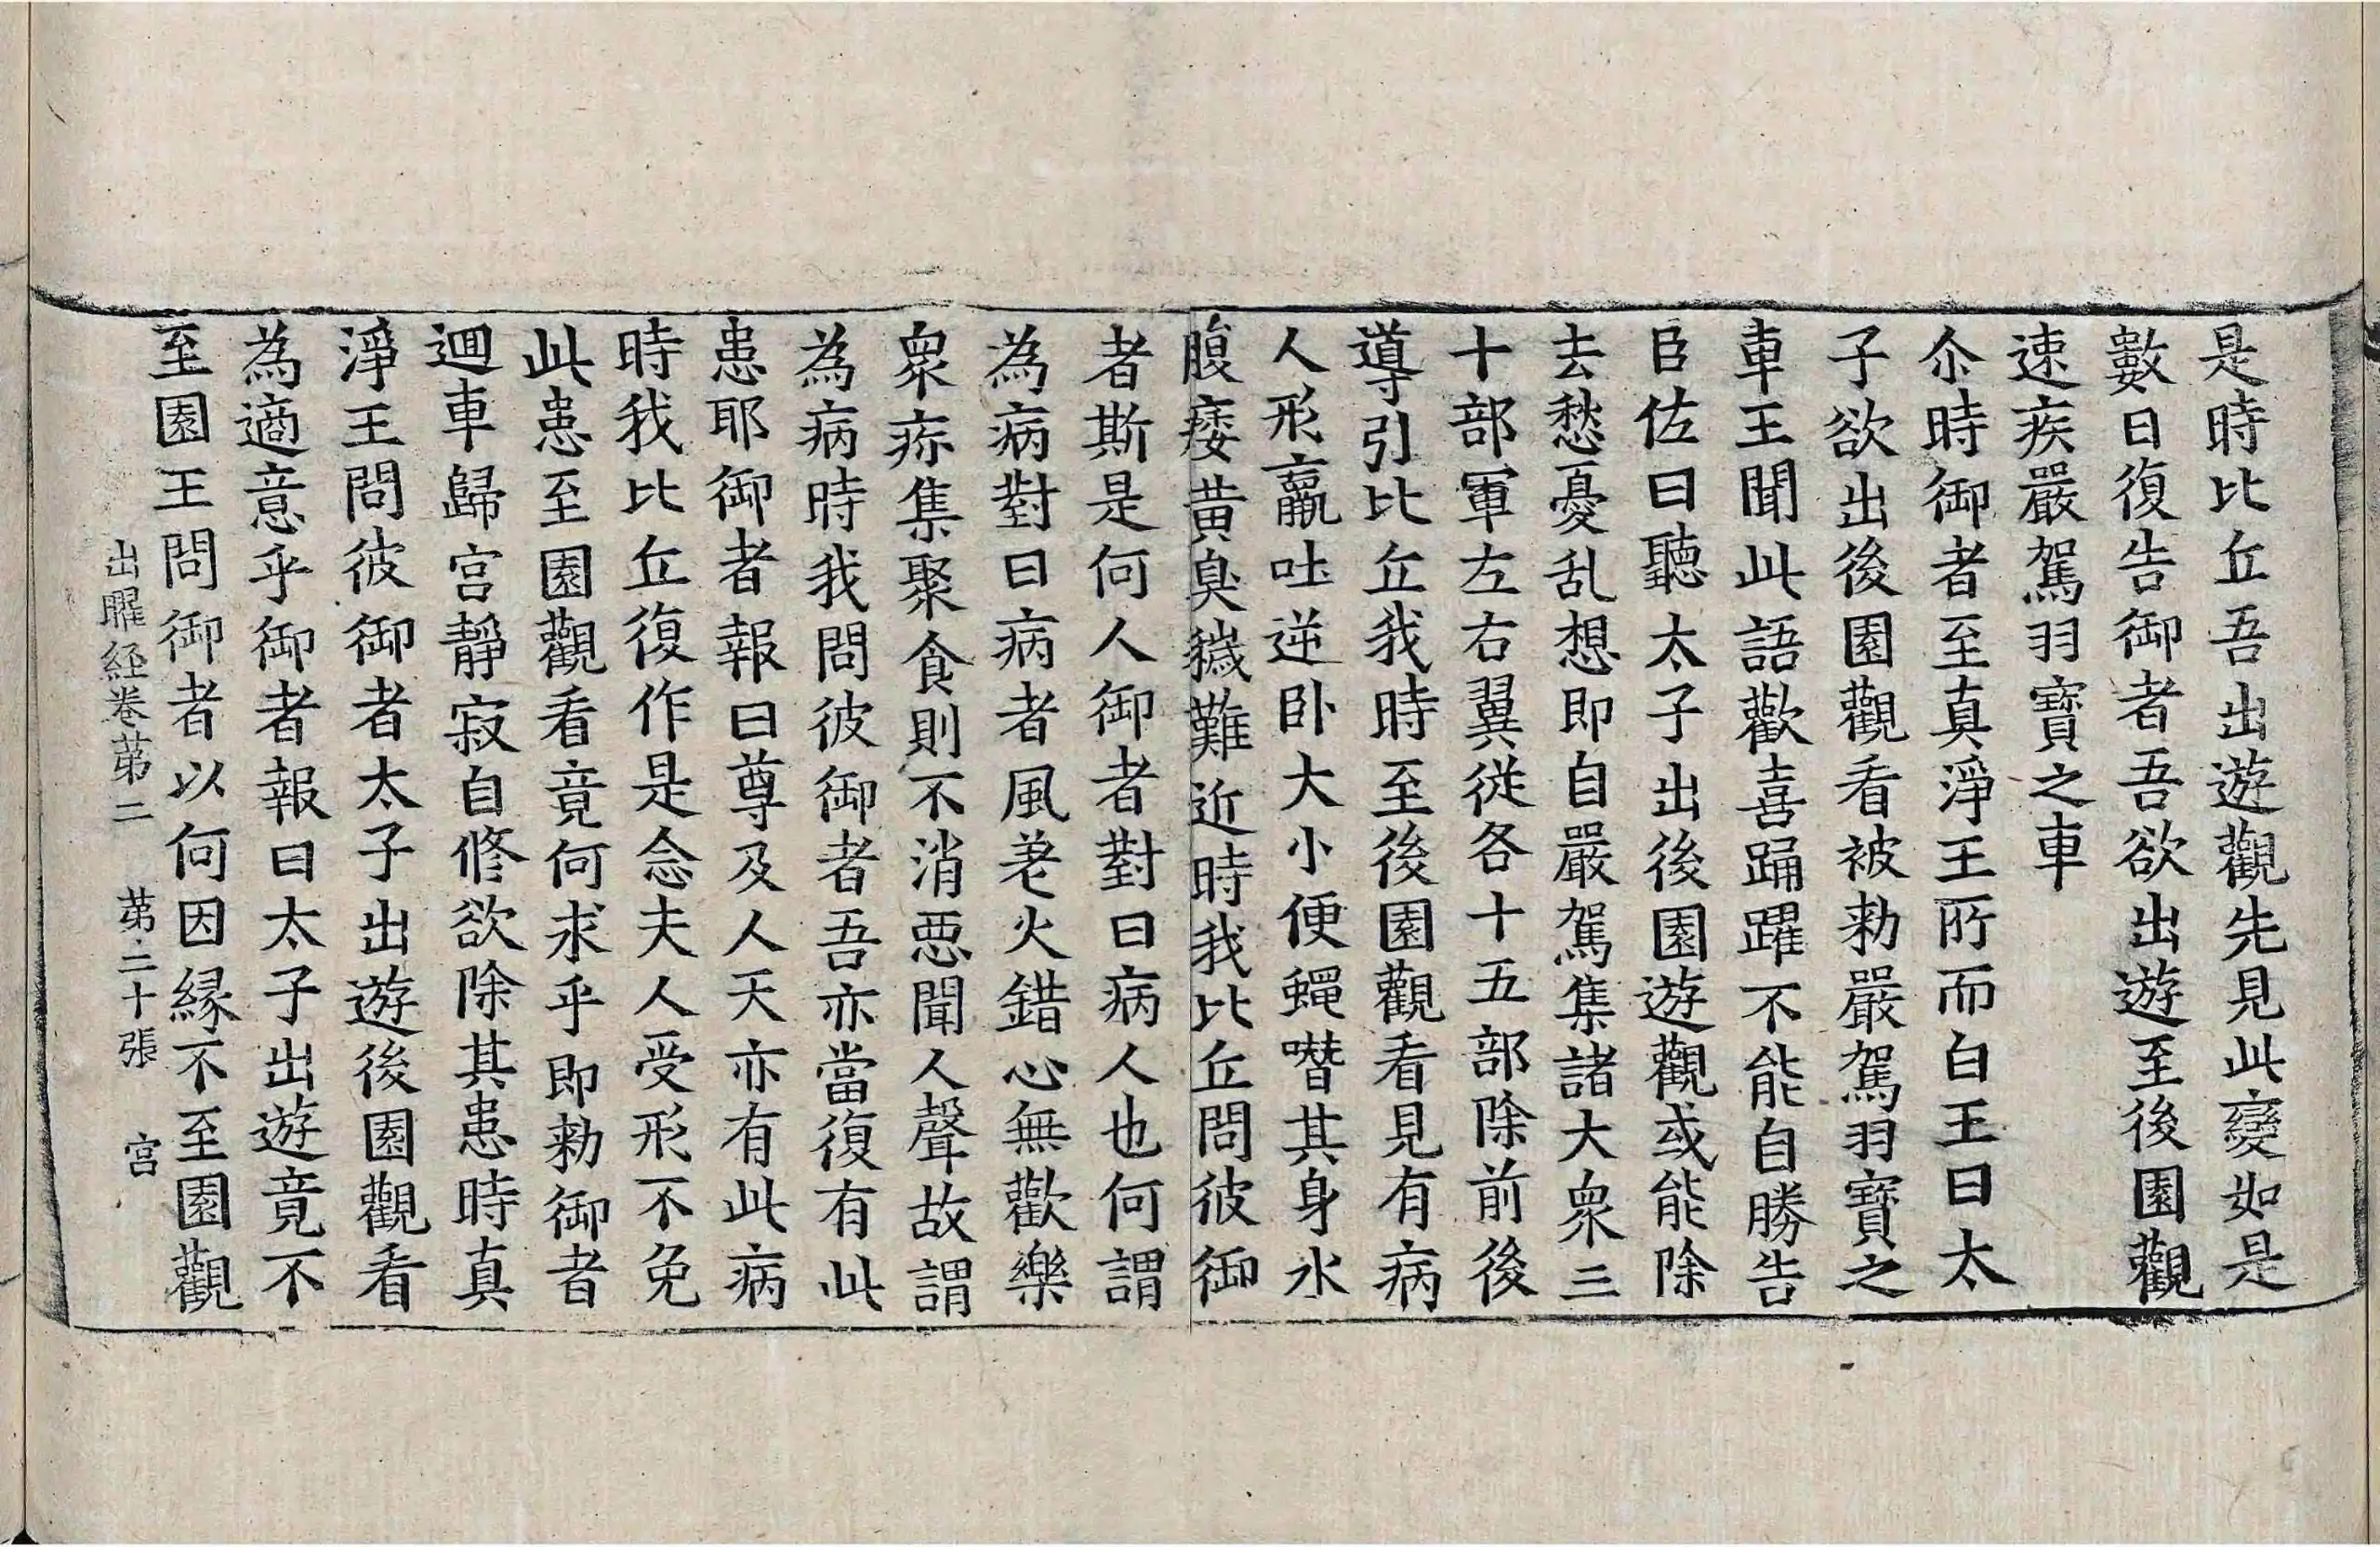 是時比丘吾出遊觀先見此變如是
數日復告御者吾欲出遊至後園觀
速疾嚴駕羽寶之車
尒時御者至真淨王所而白王曰太
子欲出後園觀看被勑嚴駕羽寶之
車王聞此語歡喜踊躍不能自勝告
臣佐曰聽太子出後園遊觀或能除
去愁憂乱想即自嚴駕集諸大衆三
十部軍左右翼從各十五部除前後
導引比丘我時至後園觀看見有病
人形羸吐逆卧大小便蠅噆其身水
腹痿黄臭穢難近時我比丘問彼御
者斯是何人御者對曰病人也何謂
為病對曰病者風差火錯心無歡樂
衆疹集聚食則不消惡聞人聲故謂
為病時我問彼御者吾亦當復有此
患耶御者報曰尊及人天亦有此病
時我比丘復作是念夫人受形不免
此患至園觀看竟何求乎即勑御者
迴車歸宮靜寂自修欲除其患時真
淨王問彼御者太子出遊後園觀看
為適意乎御者報曰太子出遊竟不
至園王問御者以何因緣不至園觀
出曜経卷苐二 苐二十張 宮